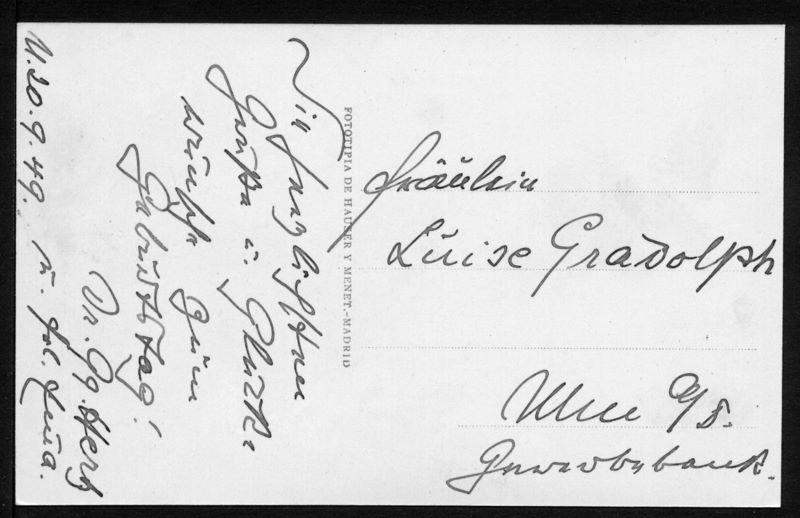 U. 20.9.49.
Die herzlichsten
Grüße u. Glück=
wünsche zum
Geburtstag!
Dr. Gg. Herz
u. frl.
FOTOTIPIA DE HAUSER Y MENET.-MADRID
Fräulein
Luise Gradolph
Ulm a/D.
Gewerbebank.